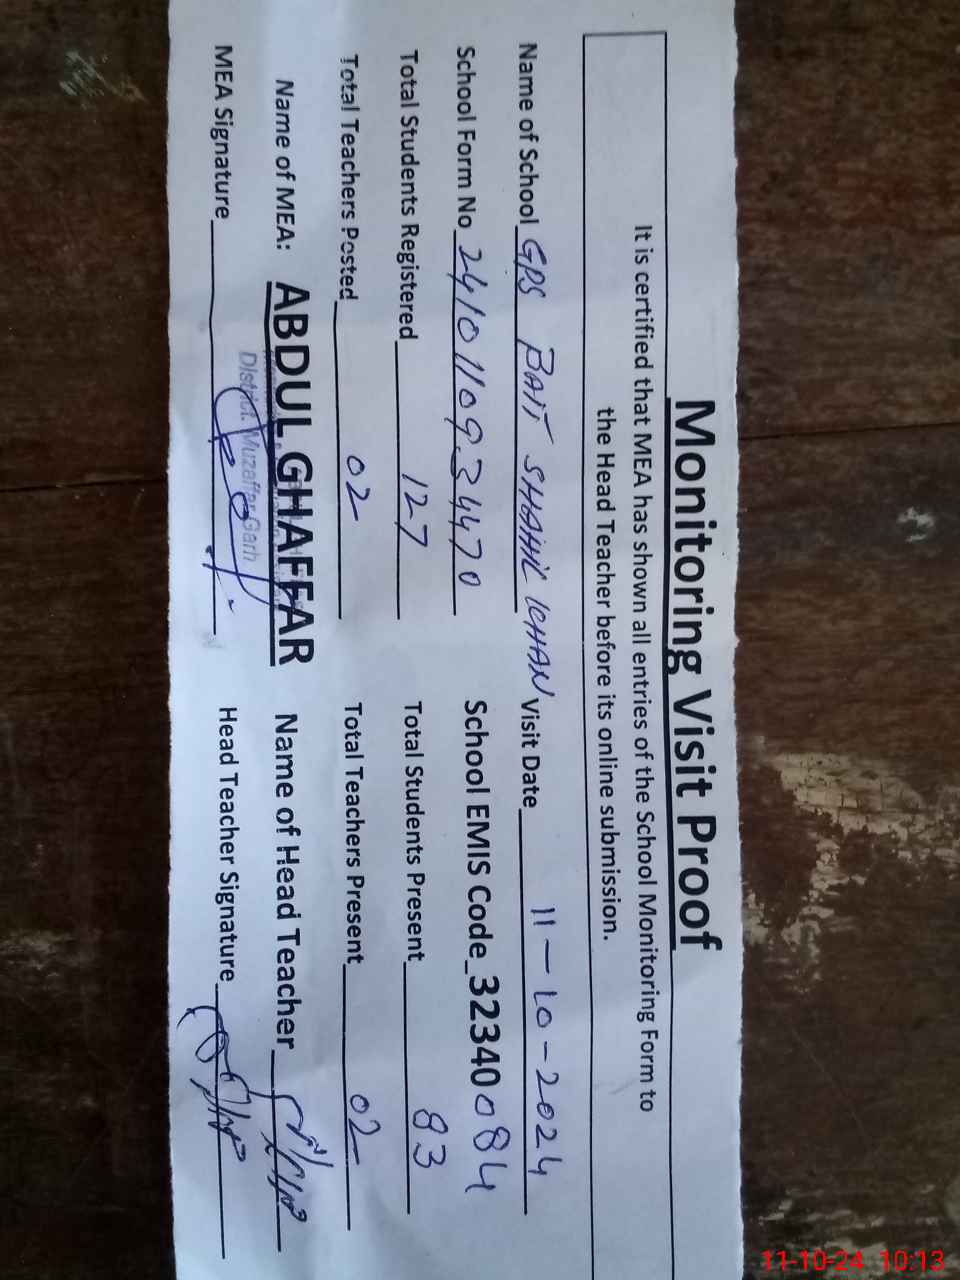 Monitoring Visit Proof
It is certified that MEA has shown all entries of the School Monitoring Form to
the Head Teacher before its online submission.
Name of School GPS BAIT SHAHIL KHAN Visit Date 11-10-2024
School Form No 2410110934470 School EMIS Code_32340084
Total Students Registered 127 Total Students Present 83
Total Teachers Posted 02 Total Teachers Present 02
Name of MEA: ABDUL GHAFFAR Name of Head Teacher
District. Muzaffar Garh
MEA Signature Head Teacher Signature
11-10-24 10:13